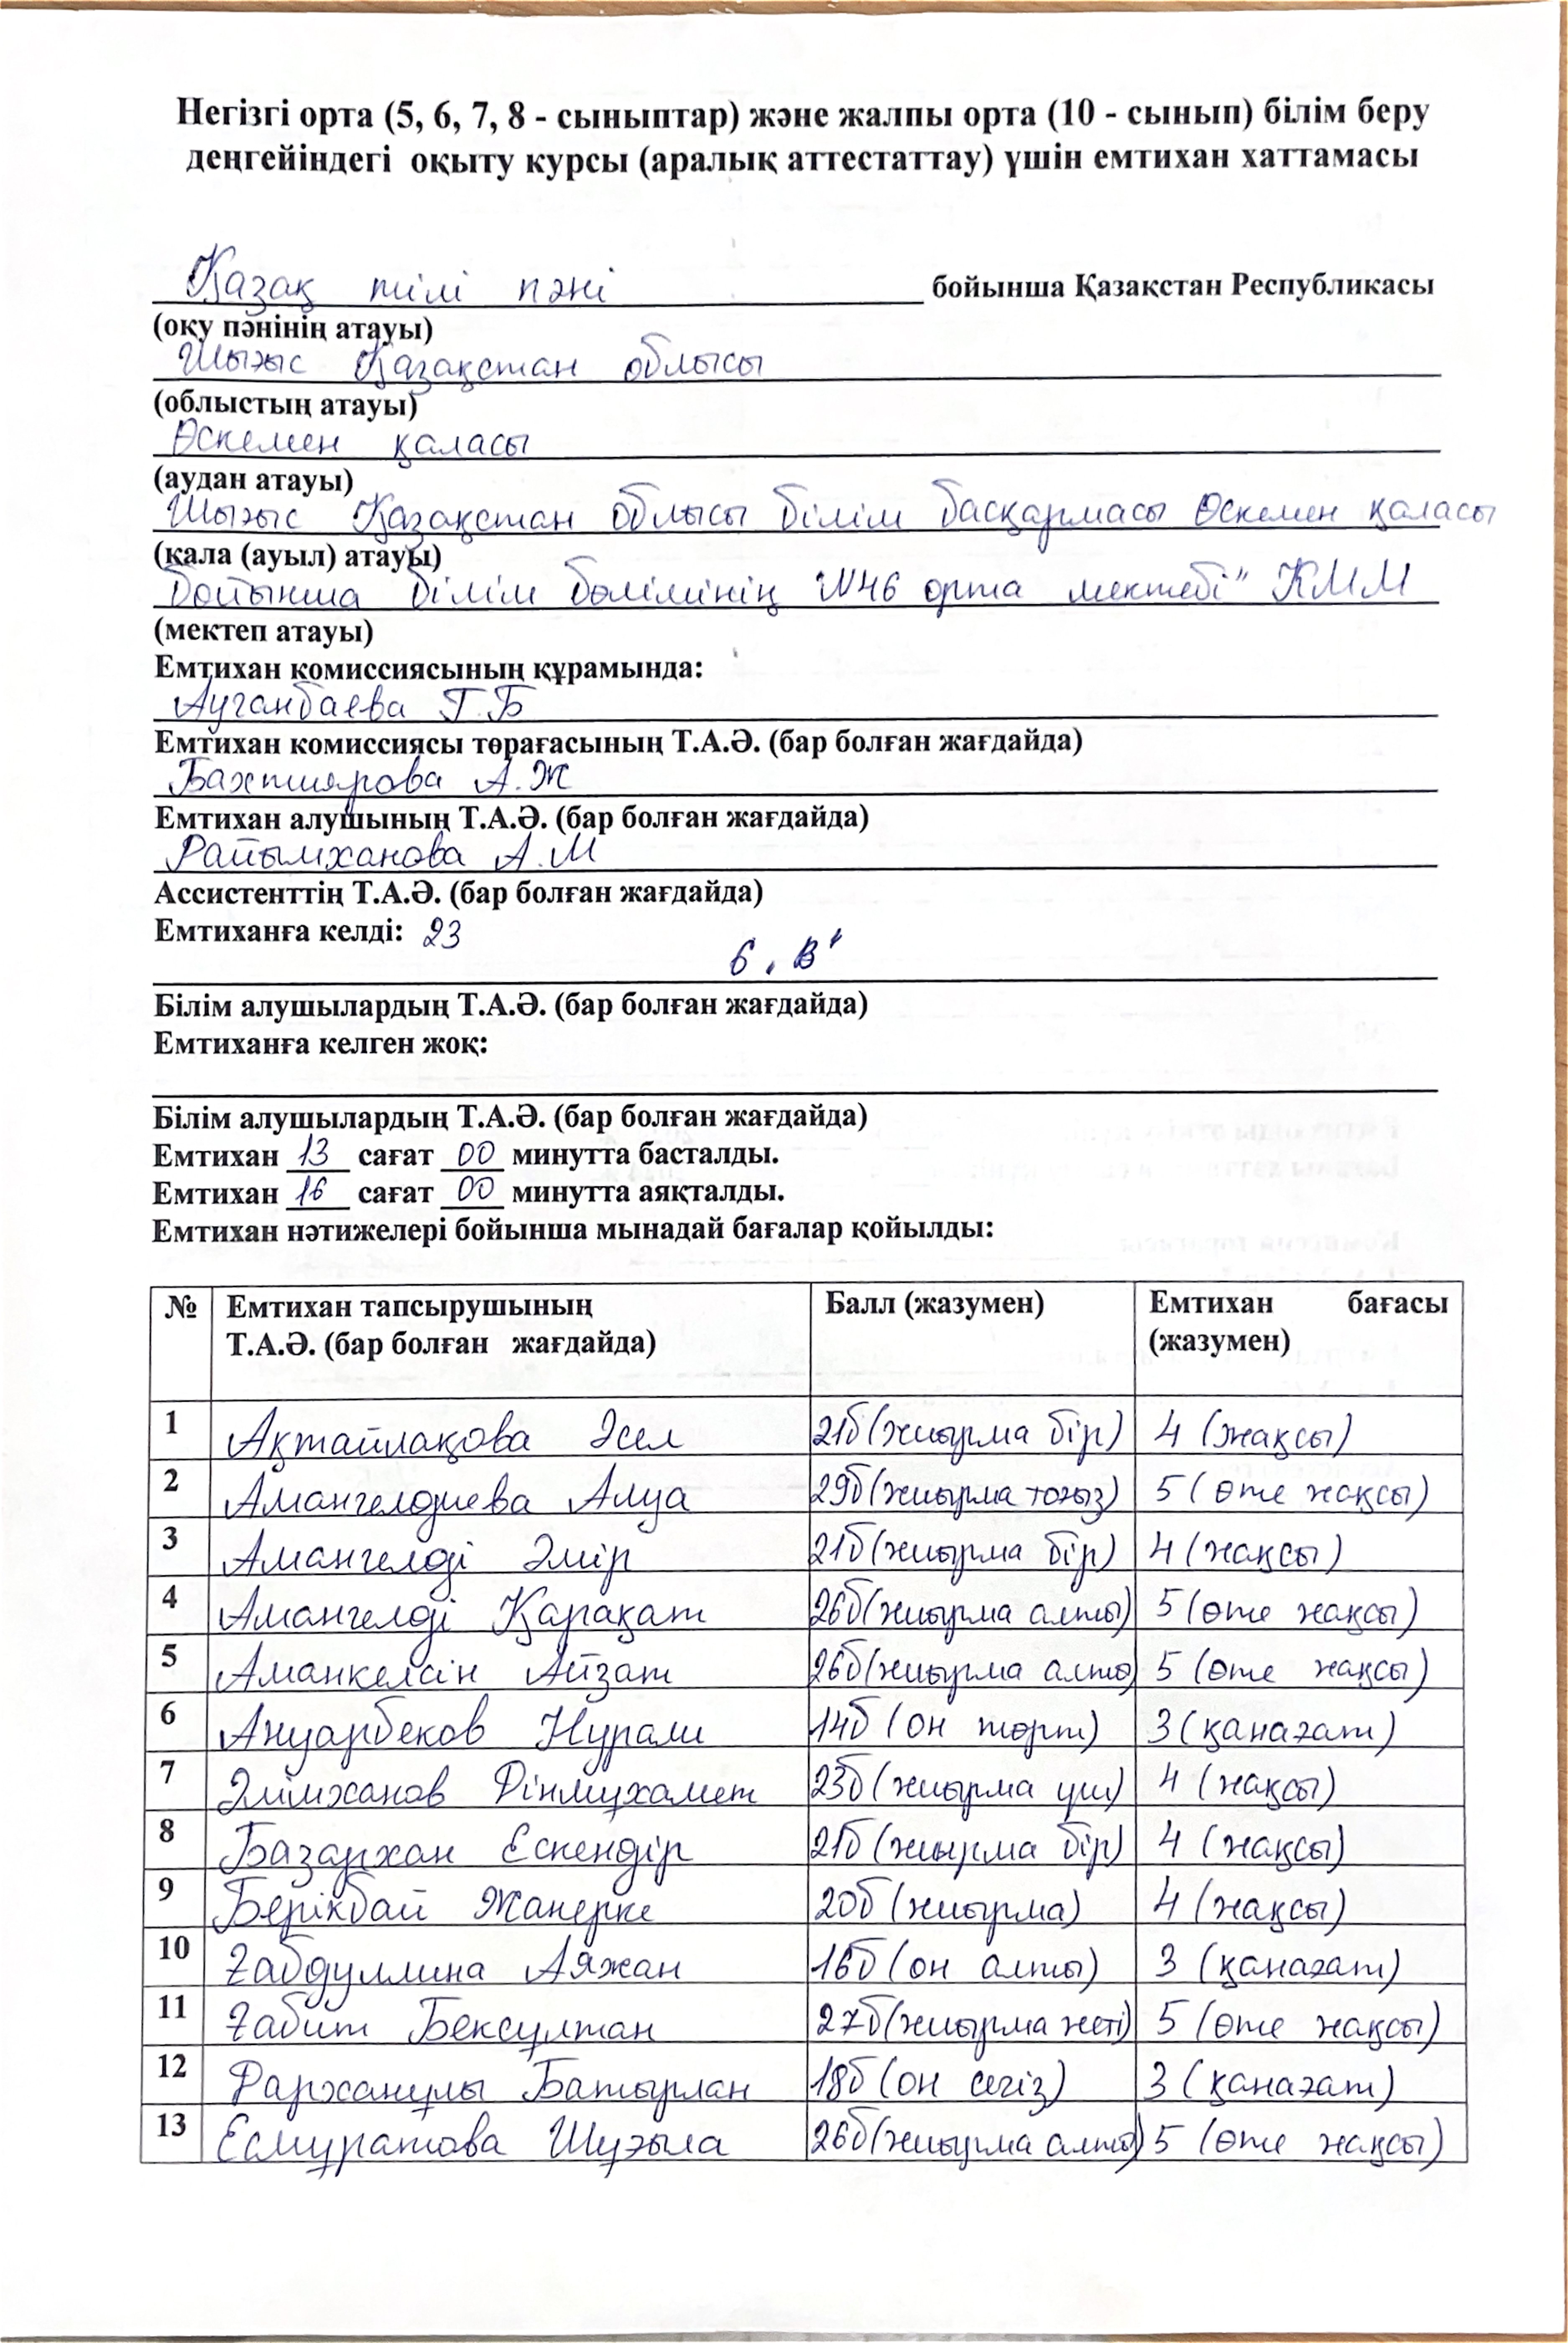 Негізгі орта (5, 6, 7, 8 - сыныптар) және жалпы орта (10 - сынып) білім беру
деңгейіндегі оқыту курсы (аралық аттестаттау) үшін емтихан хаттамасы
Қазақ тілі пәні бойынша Қазақстан Республикасы
(оқу пәнінің атауы)
Шығыс Қазақстан облысы
(облыстың атауы)
Өскемен қаласы
(аудан атауы)
Шығыс Қазақстан облысы білім басқармасы Өскемен қаласы
(қала (ауыл) атауы)
бойынша білім бөлімінің "№46 орта мектебі" КММ
(мектеп атауы)
Емтихан комиссиясының құрамында:
Ауганбаева Г.Б
Емтихан комиссиясы төрағасының Т.А.Ә. (бар болған жағдайда)
Бахтиярова А.Ж
Емтихан алушының Т.А.Ә. (бар болған жағдайда)
Райымханова А.М
Ассистенттің Т.А.Ә. (бар болған жағдайда)
Емтиханға келді: 23
6 "В"
Білім алушылардың Т.А.Ә. (бар болған жағдайда)
Емтиханға келген жоқ:
Білім алушылардың Т.А.Ә. (бар болған жағдайда)
Емтихан 13 сағат 00 минутта басталды.
Емтихан 16 сағат 00 минутта аяқталды.
Емтихан нәтижелері бойынша мынадай бағалар қойылды:
№ Емтихан тапсырушының Т.А.Ә. (бар болған жағдайда) Балл (жазумен) Емтихан бағасы (жазумен)
1 Ақтайлақова Әсел 21б (жиырма бір) 4 (жақсы)
2 Амангелдиева Алуа 29б (жиырма тоғыз) 5 (өте жақсы)
3 Амангелді Әмір 21б (жиырма бір) 4 (жақсы)
4 Амангелді Қарақат 26б (жиырма алты) 5 (өте жақсы)
5 Аманкелсін Айзат 26б (жиырма алты) 5 (өте жақсы)
6 Ануарбеков Нурали 14б (он төрт) 3 (қанағат)
7 Әлімханов Дінмұхамет 23б (жиырма үш) 4 (жақсы)
8 Базархан Ескендір 21б (жиырма бір) 4 (жақсы)
9 Берікбай Жанерке 20б (жиырма) 4 (жақсы)
10 Ғабдуллина Аяжан 16б (он алты) 3 (қанағат)
11 Ғабит Бексұлтан 27б (жиырма жеті) 5 (өте жақсы)
12 Дарханұлы Батырлан 18б (он сегіз) 3 (қанағат)
13 Есмұратова Шұғыла 26б (жиырма алты) 5 (өте жақсы)